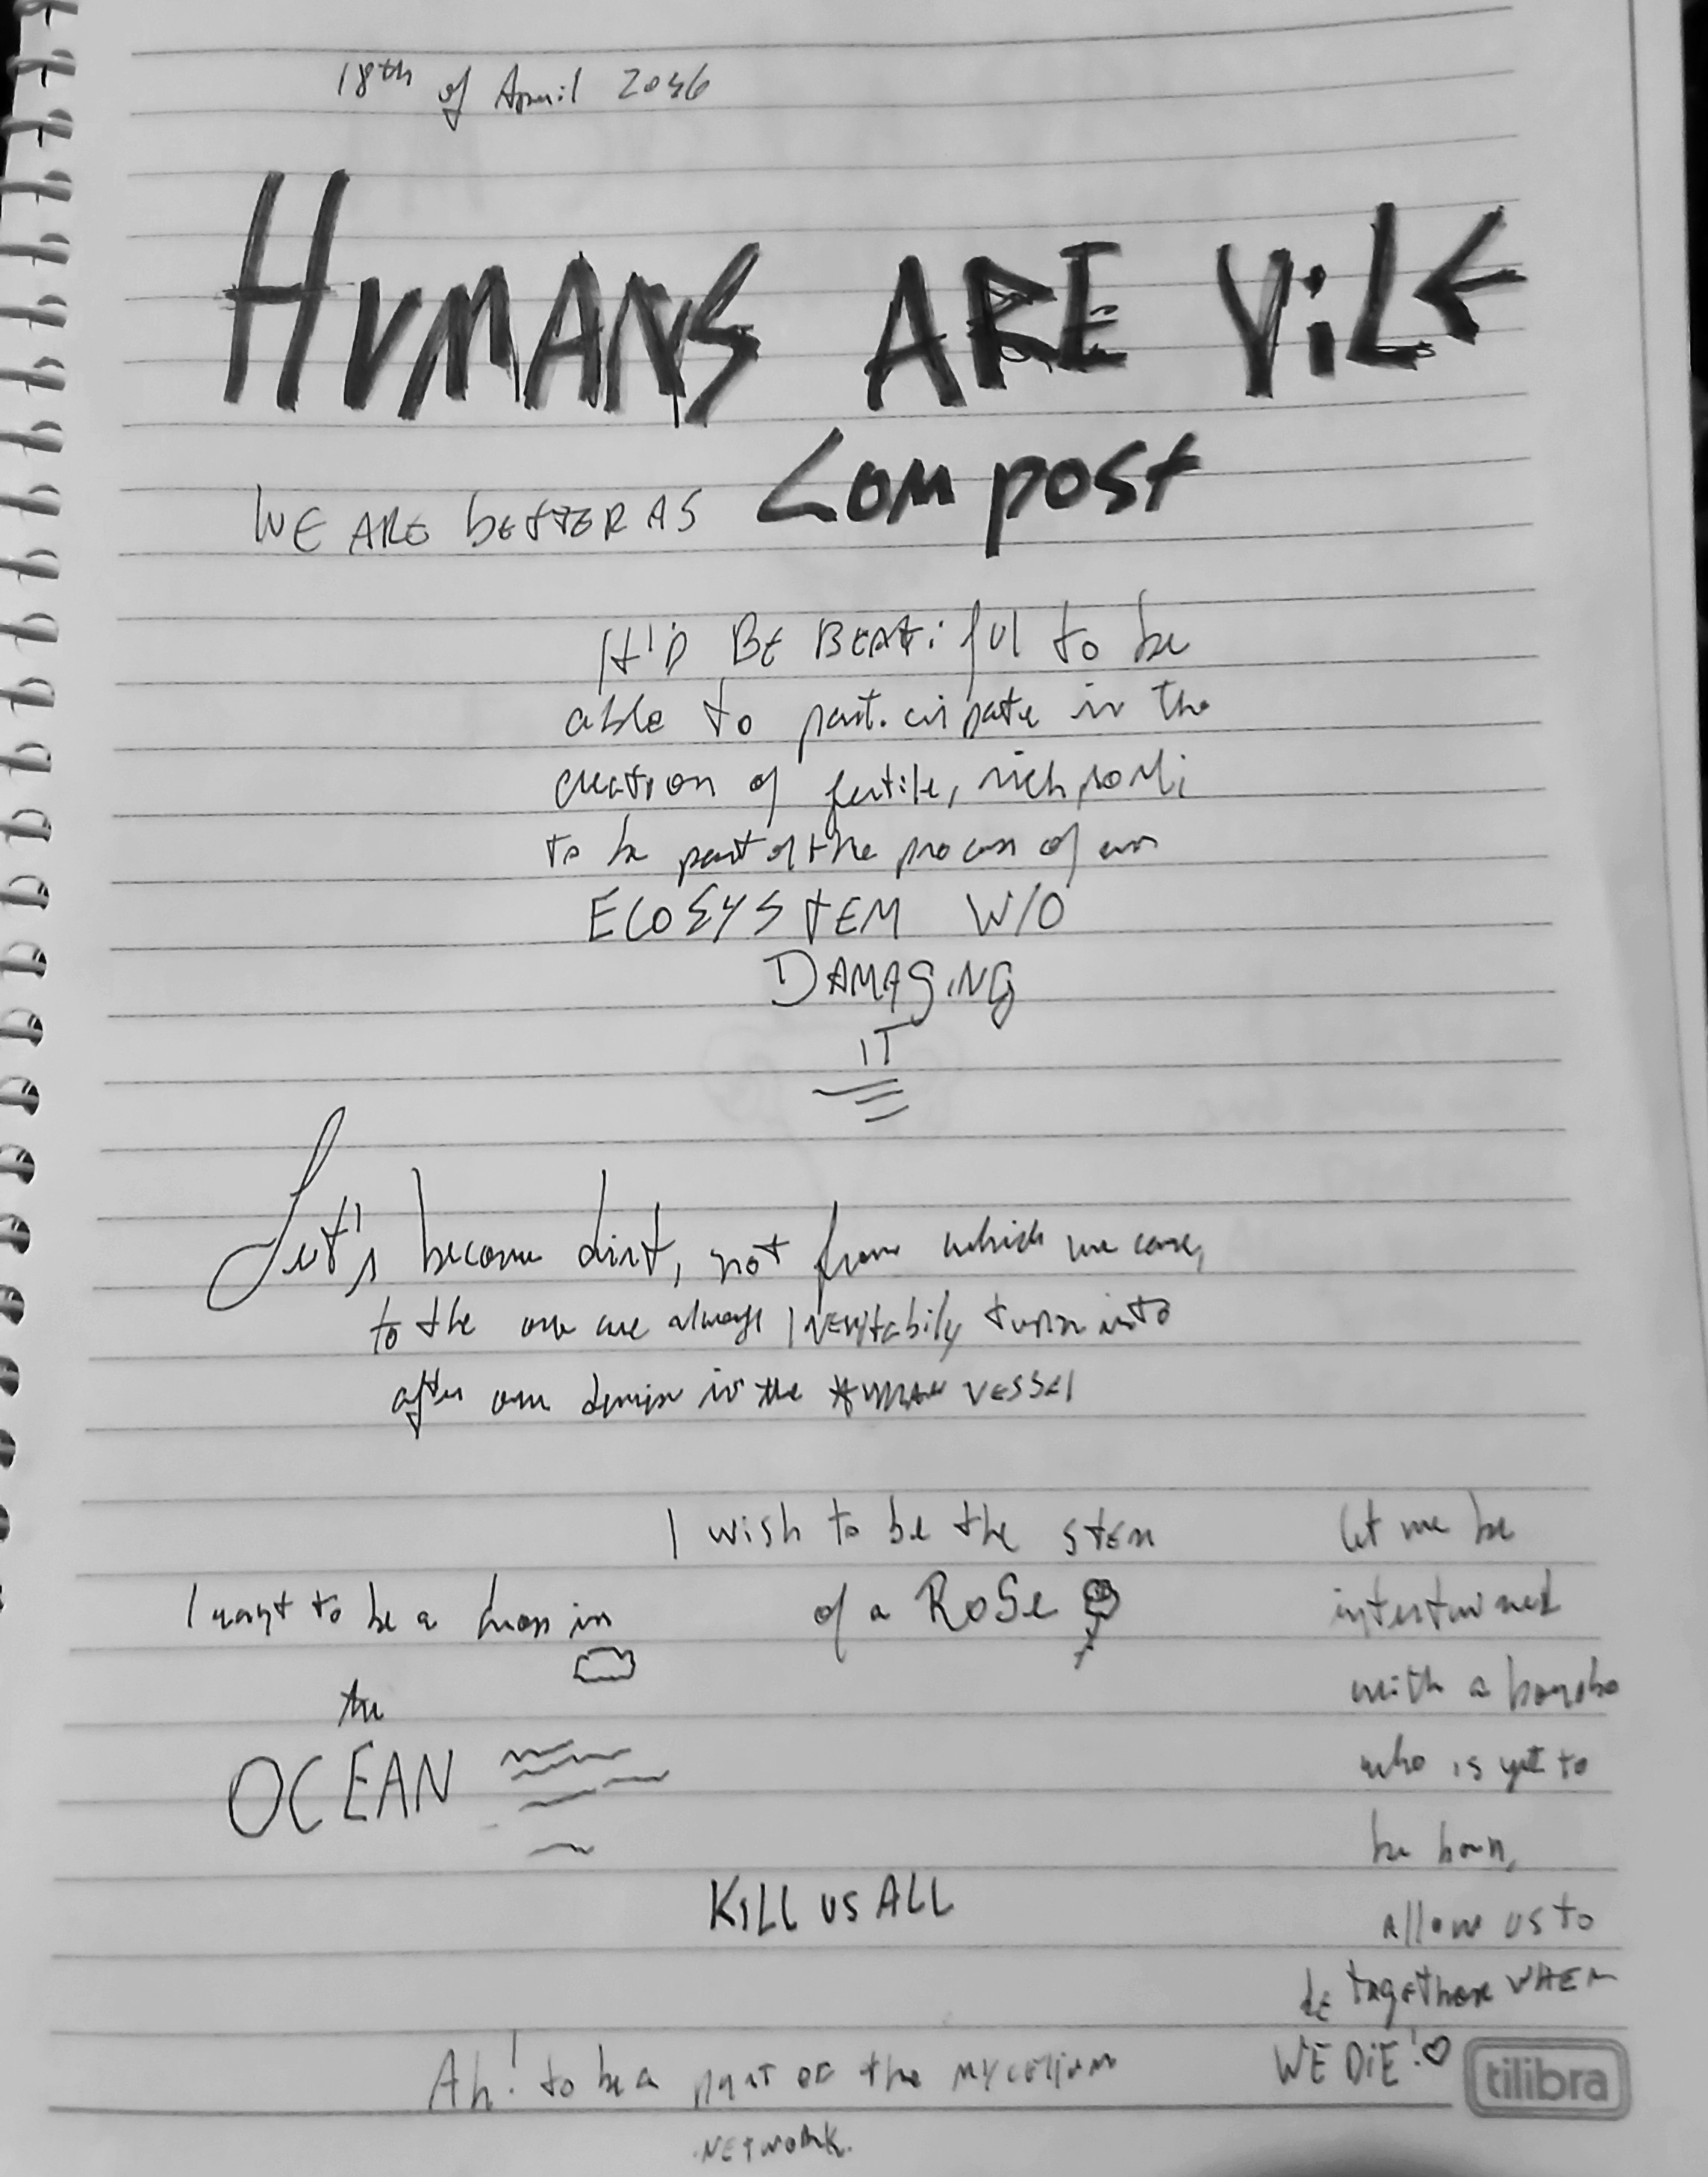 18th of April 2046
HUMANS ARE ViLE
WE ARE bETTER AS Compost
It'D BE BEATiful to be
able to participate in the
creation of fertile, rich soil;
to be part of the process of an
ECOSYSTEM W/O
DAMAGING
IT
Let's become dirt, not from which we came,
to the one we always INEVitabily turn into
after our demise in the HUMAN VESSEl
I wish to be the stem
of a RoSe
I want to be a drop in
the
OCEAN
let me be
intertwined
with a
who is yet to
be born,
allow us to
be together WHEN
WE DiE!♡
KiLL us ALL
Ah! to be a part of the mycelium
NETWORK.
tilibra